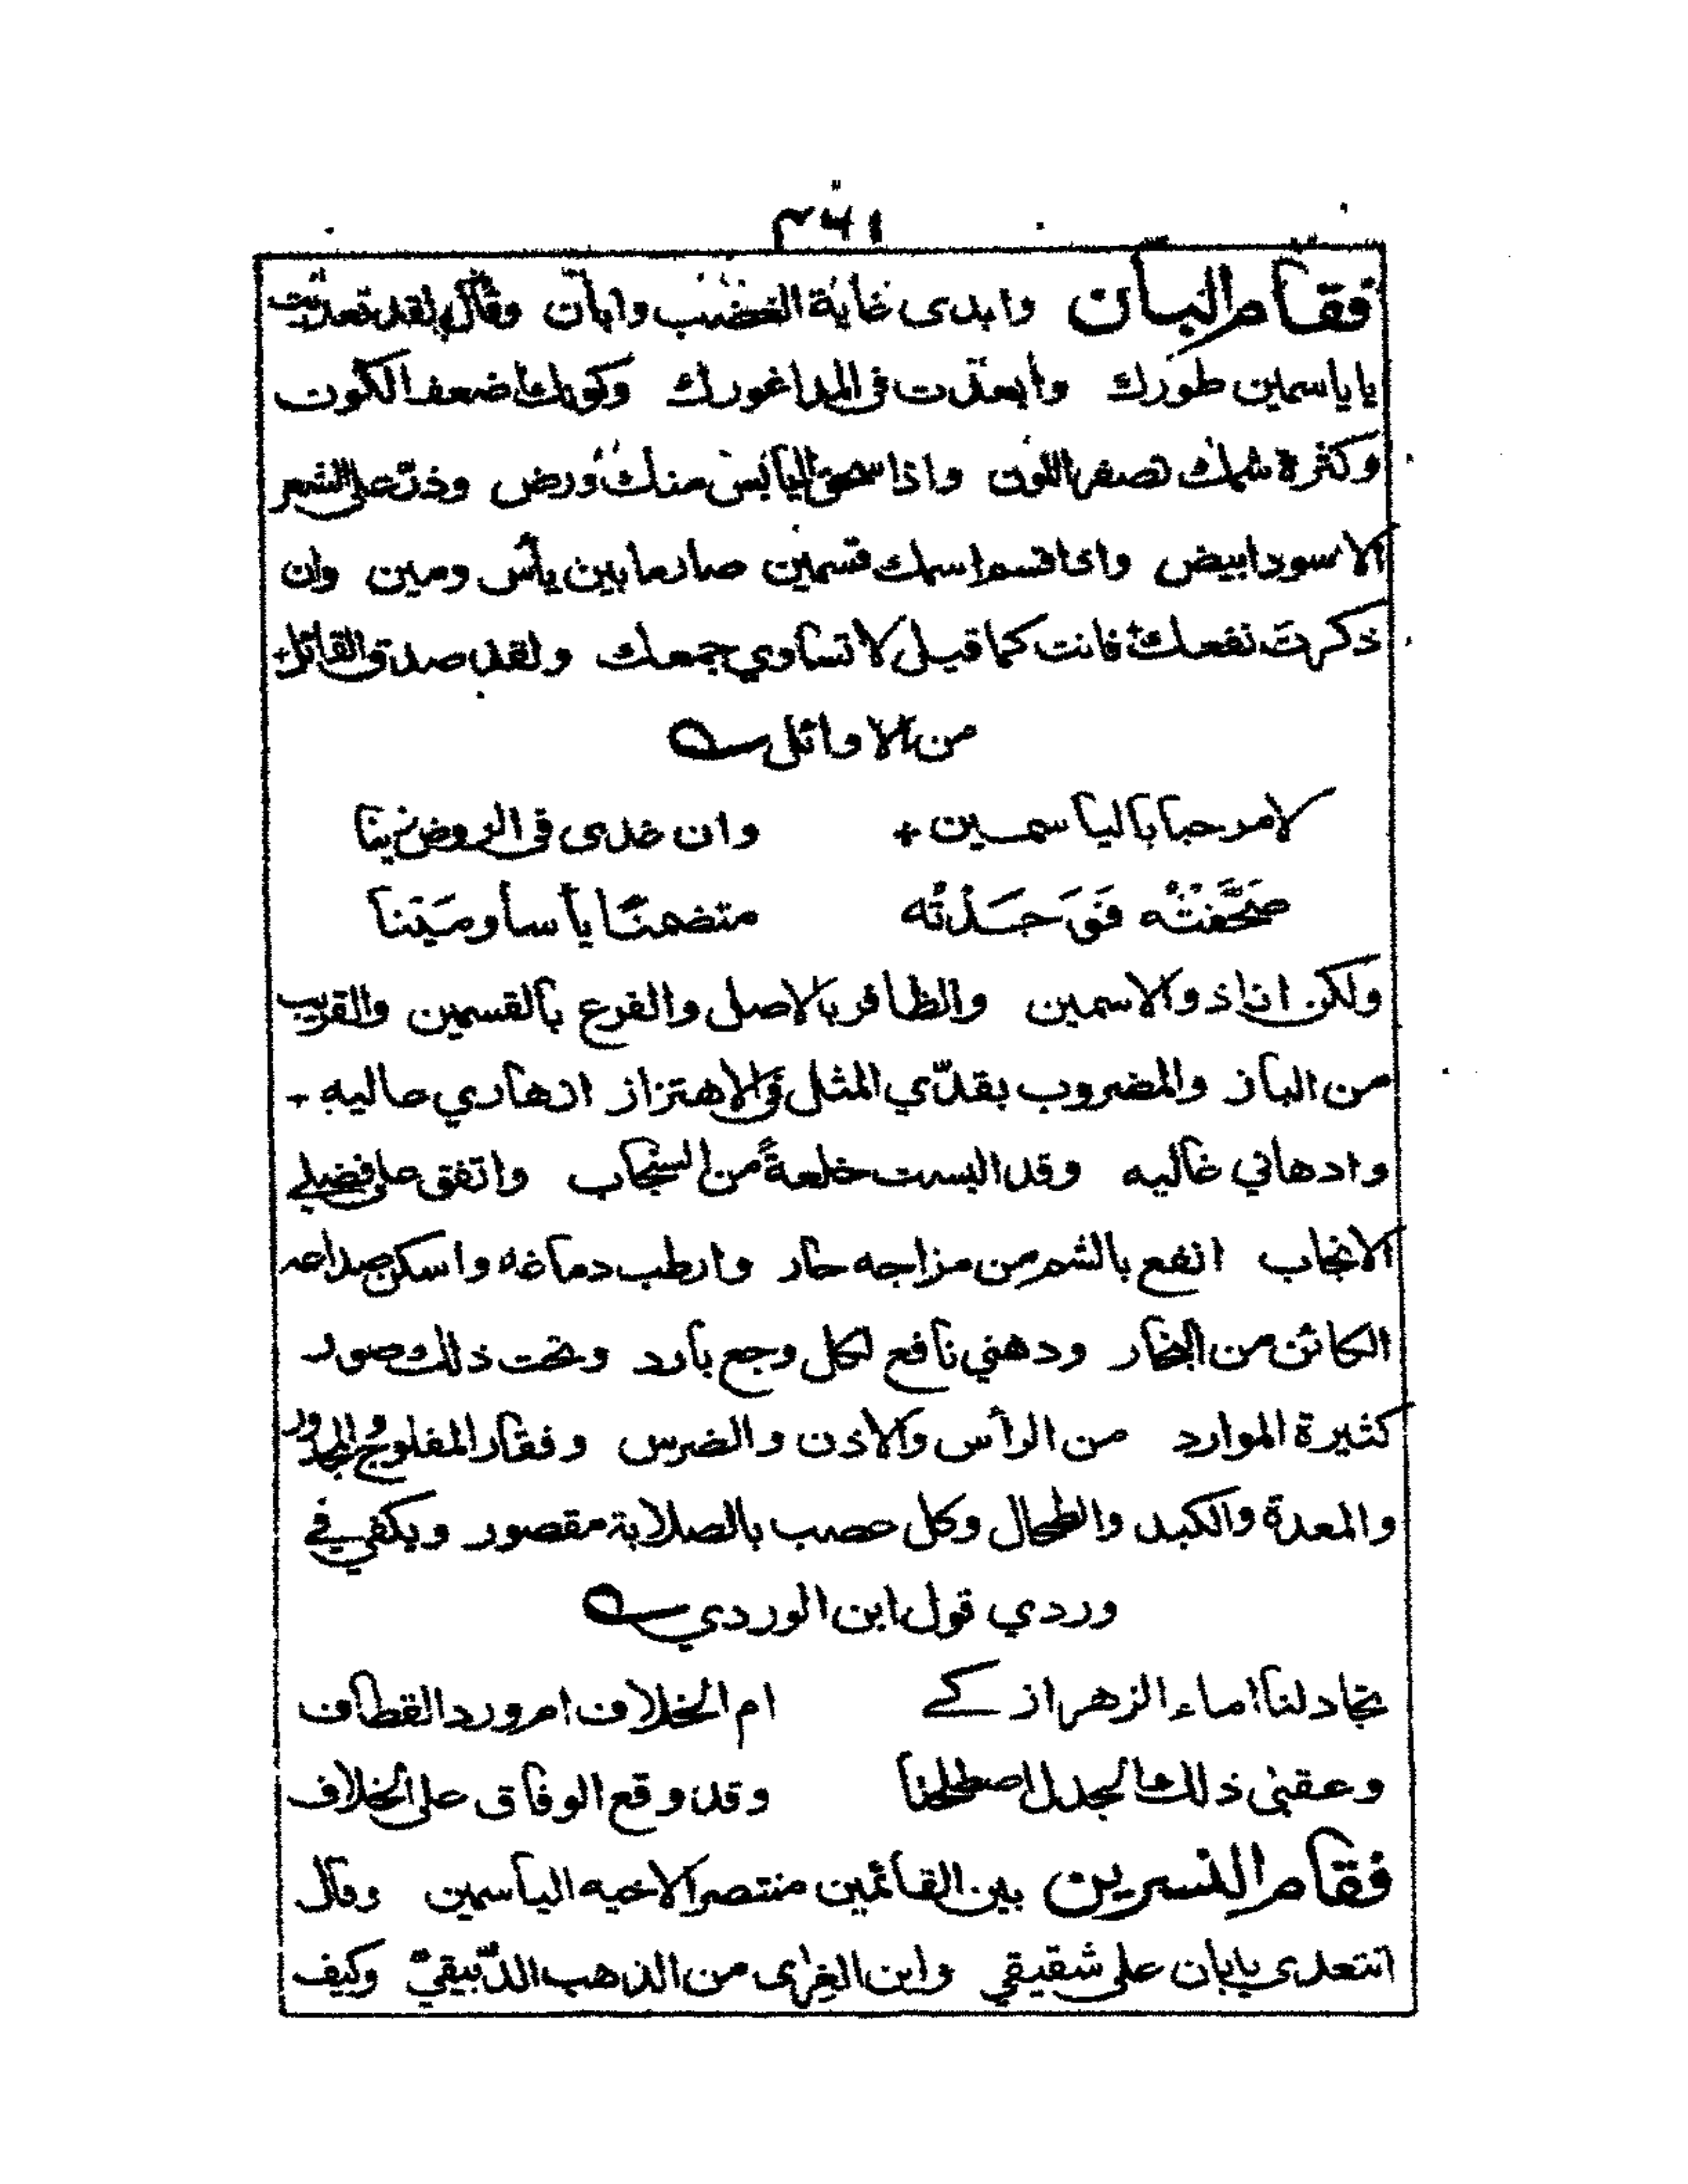 ٣٤١
فقام البان وابدى غاية الغضب وابان وقال لقد تعديت
يا ياسمين طورك وابعدت في المدا غورك وكونك اضعف الكون
وكثرة شمك تصفر اللون واذا سحق اليابس منك ورض وذر على الشعر
الاسود ابيض واذا قسم اسمك قسمين صار ما بين يأس ومين وان
ذكرت نفعك فانت كما قيل لا تساوي جمعك ولقد صدق القائل
من الاوائل
لا مرحبا بالياسمين وان غدى في الروض زينا
صَحَّفتُه فَوَجَدْتُه متضمنًا يأسا ومَيْننا
ولكن انا ذو الاسمين والظافر بالاصل والفرع بالقسمين والقريب
من الباز والمضروب بقدّي المثل في الاهتزاز ازهاري عاليه
وادهاني غاليه وقد البست خلعةً من السنجاب واتفق على فضلي
الانجاب انفع بالشم من مزاجه حار وارطب دماغه واسكن صداعه
الكائن من البخار ودهني نافع لكل وجع بارد وتحت ذلك صور
كثيرة الموارد من الرأس والاذن والضرس وفقار المفلوج
والمعدة والكبد والطحال وكل عصب بالصلابة مقصور ويكفي في
وردي قول ابن الوردي
تجادلنا اماء الزهر ازكى ام الخلاف ام ورد القطاف
وعقبى ذلك الجدل اصطلحنا وقد وقع الوفاق على الخلاف
فقام النسرين بين القائمين منتصرا لاخيه الياسمين وقال
اتتعدى يابان على شقيقي واين الفرى من الذهب الدّبيقيّ وكيف